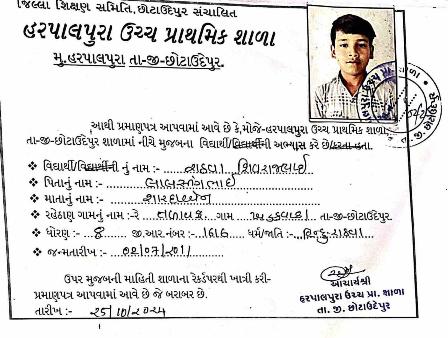 જિલ્લા શિક્ષણ સમિતિ,છોટાઉદેપુર સંચાલિત
હરપાલપુરા ઉચ્ચ પ્રાથમિક શાળા
મુ.હરપાલપુરા તા-જી-છોટાઉદેપુર.
આથી પ્રમાણપત્ર આપવામાં આવે છે કે,મોજે-હરપાલપુરા ઉચ્ચ પ્રાથમિક શાળા,
તા-જી-છોટાઉદેપુર શાળામાં નીચે મુજબનના વિદ્યાર્થી/વિદ્યાર્થીની અભ્યાસ કરે છે/કરતા હતા.
❖ વિદ્યાર્થી/વિદ્યાર્થીની નું નામ :- રાઠવા શિવરાજભાઈ
❖ પિતાનું નામ :- લાલસીંગભાઈ
❖ માતાનું નામ :- શારદાબેન
❖ રહેઠાણ ગામનું નામ:- રે. ગામ તા-જી-છોટાઉદેપુર
❖ ધોરણ :- 8 જી.આર.નંબર :- 1616 ધર્મ/જાતિ :- હિન્દુ-રાઠવા
❖ જન્મતારીખ :- 02/07/2011
ઉપર મુજબની માહિતી શાળાના રેકર્ડપરથી ખાત્રી કરી-
પ્રમાણપત્ર આપવામાં આવે છે જે બરાબર છે.
તારીખ :- 25/10/2024
આચાર્યશ્રી
હરપાલપુરા ઉચ્ચ પ્રા. શાળા
તા. જી. છોટાઉદેપુર